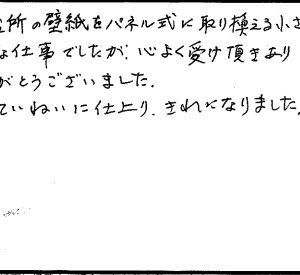 所の壁紙をパネル式に取り換える小さ
な仕事でしたが、心よく受け頂きあり
がとうございました。
ていねいに仕上り、きれになりました。